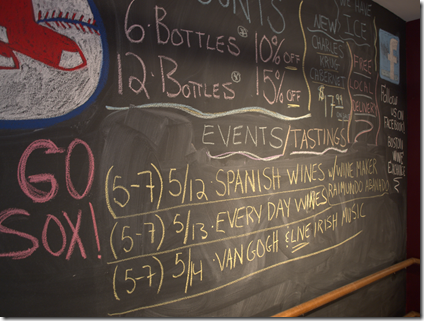 COUNTS
6 · BOTTLES 10% OFF
12 · BOTTLES 15% OFF
WE HAVE
ICE
NEW
CHARLES
$17.99
FREE
LOCAL
DELIVERY
f
FOLLOW
US ON
FACEBOOK
BOSTON
WINE
EXCHANGE
EVENTS/TASTINGS
GO
SOX!
(5-7) 5/12 · SPANISH WINES W/ WINE MAKER
RAIMUNDO
(5-7) 5/13 · EVERY DAY WINES
(5-7) 5/14 · VAN GOGH & LIVE IRISH MUSIC